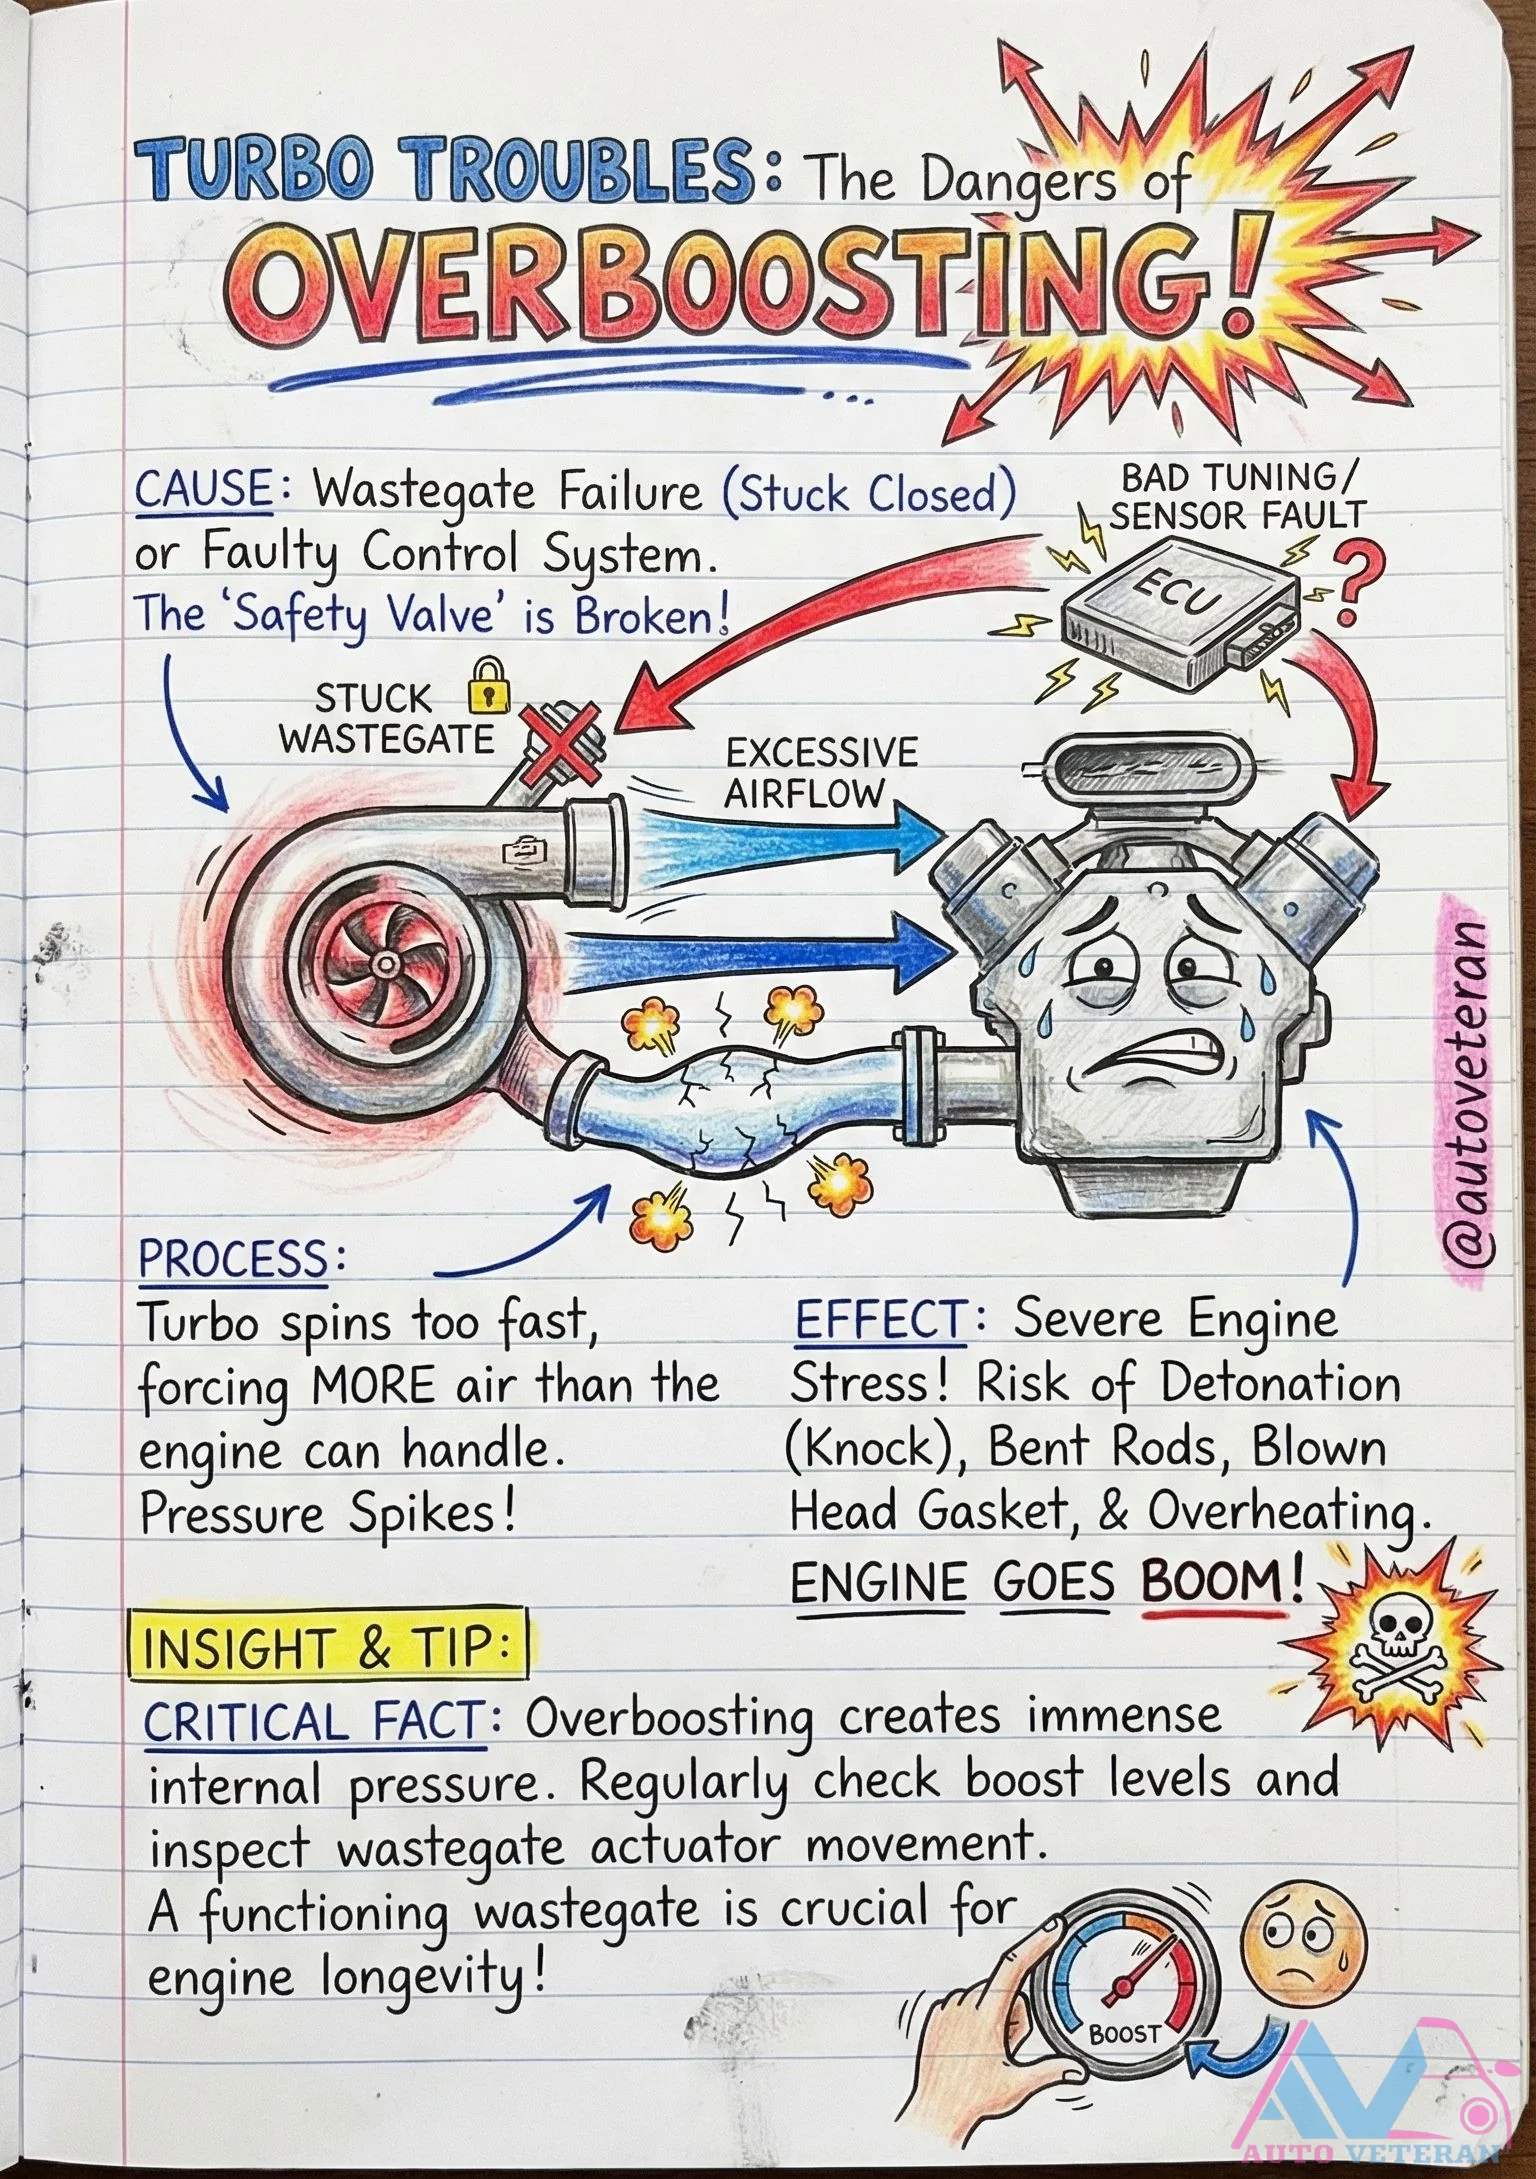 TURBO TROUBLES: The Dangers of
OVERBOOSTING!
CAUSE: Wastegate Failure (Stuck Closed)
or Faulty Control System.
The 'Safety Valve' is Broken!
BAD TUNING/
SENSOR FAULT
ECU
?
STUCK
WASTEGATE
EXCESSIVE
AIRFLOW
@autoveteran
PROCESS:
Turbo spins too fast,
forcing MORE air than the
engine can handle.
Pressure Spikes!
EFFECT: Severe Engine
Stress! Risk of Detonation
(Knock), Bent Rods, Blown
Head Gasket, & Overheating.
ENGINE GOES BOOM!
INSIGHT & TIP:
CRITICAL FACT: Overboosting creates immense
internal pressure. Regularly check boost levels and
inspect wastegate actuator movement.
A functioning wastegate is crucial for
engine longevity!
BOOST
AV
AUTO VETERAN